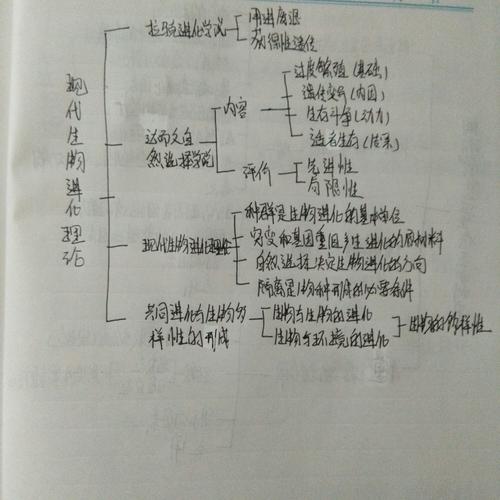 现代生物进化理论
拉马进化学说
用进废退
获得性遗传
达而文自
然选择学说
内容
过度繁殖(基础)
遗传变异(内因)
生存斗争(动力)
适者生存(结果)
评价
先进性
局限性
现代生物进化理论
种群是生物进化的基本单位
突变和基因重组产生进化的原材料
自然选择决定生物进化的方向
隔离是物种形成的必要条件
共同进化与生物多
样性的形成
生物与生物的进化
生物与环境的进化
生物的多样性